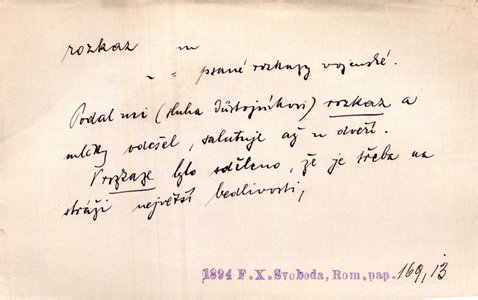 rozkaz m
" " psané rozkazy vojenské.
Podal mi (sluha důstojníkovi) rozkaz a
mlčky odešel, salutuje až u dveří.
V rozkaze bylo sděleno, že je třeba na
stráži největší bedlivosti,
1894 F. X. Svoboda, Rom. pap. 169, 13